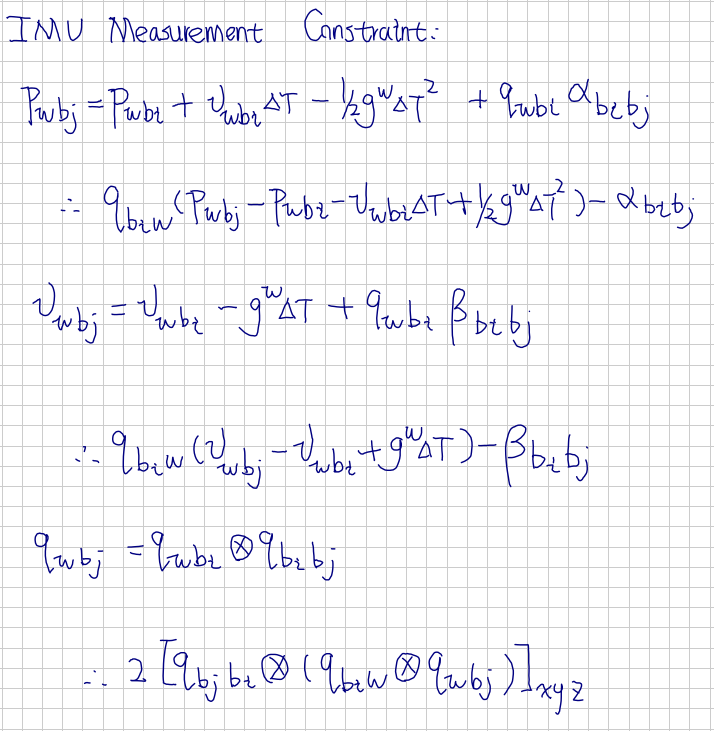 IMU Measurement Constraint:
p_{wb_j} = p_{wb_i} + v_{wb_i} ΔT - 1/2 g^w ΔT^2 + q_{wb_i} α_{b_i b_j}
∴ q_{b_i w} (p_{wb_j} - p_{wb_i} - v_{wb_i} ΔT + 1/2 g^w ΔT^2) - α_{b_i b_j}
v_{wb_j} = v_{wb_i} - g^w ΔT + q_{wb_i} β_{b_i b_j}
∴ q_{b_i w} (v_{wb_j} - v_{wb_i} + g^w ΔT) - β_{b_i b_j}
q_{wb_j} = q_{wb_i} ⊗ q_{b_i b_j}
∴ 2 [q_{b_j b_i} ⊗ (q_{b_i w} ⊗ q_{wb_j})]_{xyz}